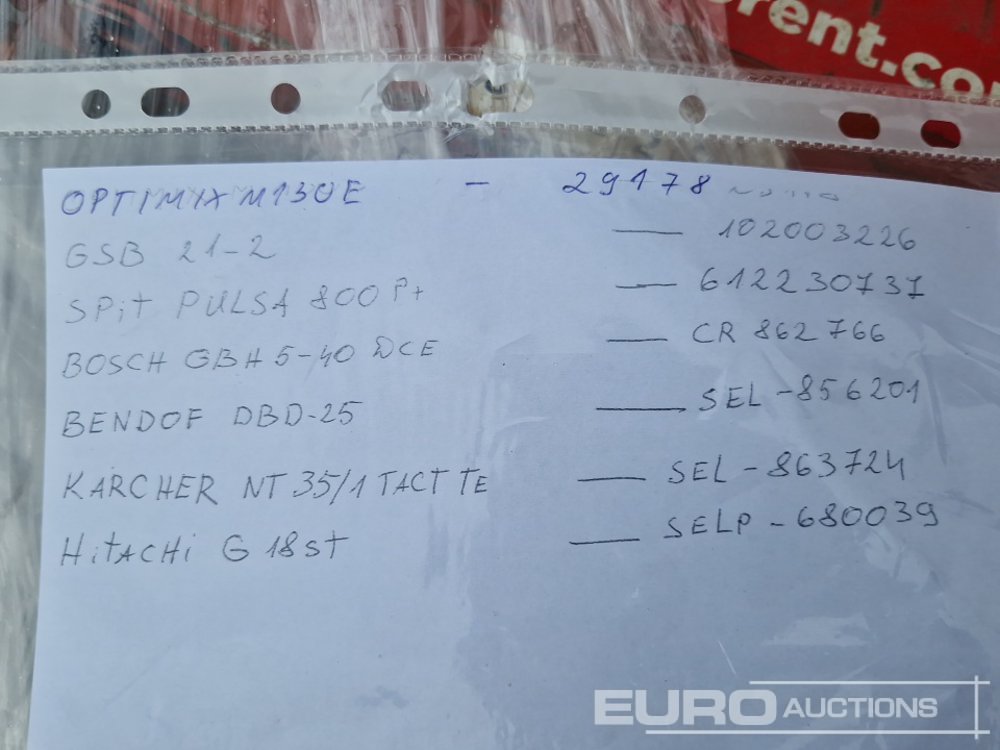 erent.com
OPTIMIX M130E - 29178
GSB 21-2 — 102003226
SPiT PULSA 800 P+ — 612230737
BOSCH GBH 5-40 DCE — CR 862766
BENDOF DBD-25 — SEL-856201
KÄRCHER NT 35/1 TACT TE — SEL-863724
HiTACHi G 18ST — SELP-680039
EURO AUCTIONS